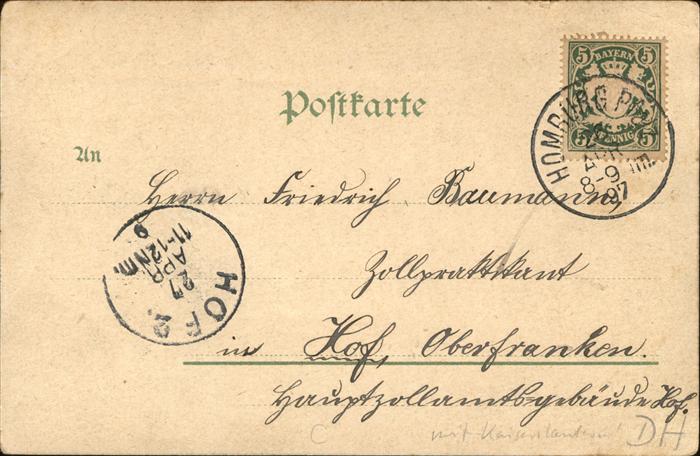 5 BAYERN 5
5 PFENNIG 5
HOMBURG PFALZ
APR
8-9
97
Postkarte
An
Herrn Friedrich Baumann
Zollpraktikant
in Hof, Oberfranken.
Hauptzollamtsgebäude Hof.
HOF 2.
27
APR
11-12
NM.
9
mit
DH